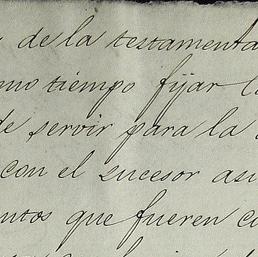 de la testamenta
mo tiempo fijar l
de servir para la
con el sucesor asi
ntos que fueren c